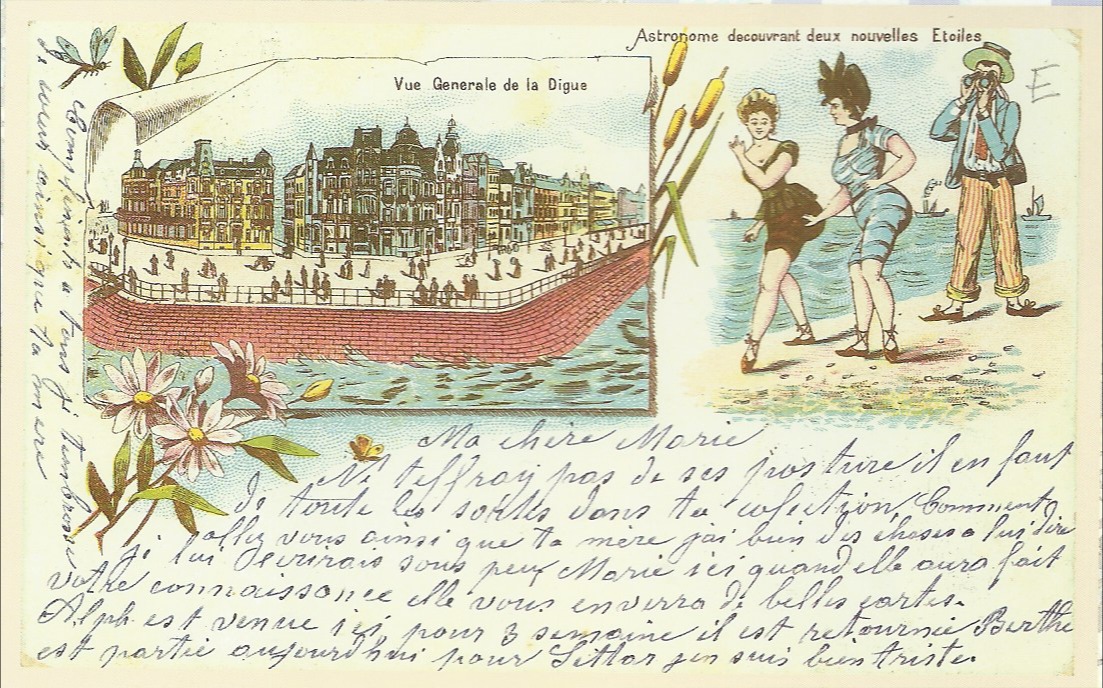 Astronome decouvrant deux nouvelles Etoiles
Vue Generale de la Digue
E
Ma chère Marie
Ne t'effray pas de ses posture il en faut
de toute les sortes dans ta colection, Comment
allez vous ainsi que ta mère j'ai bien des choses a lui dire
ji lui decrirais sous peux Marie ici quand elle aura fait
votre connaissance elle vous enverra de belles cartes.
Alph est venue ici, pour 3 semaine il est retournée Berthe
est partie aujourd'hui pour j'en suis bien triste.
a tous ji t'embrasse
de coeur ainsi que ta mere